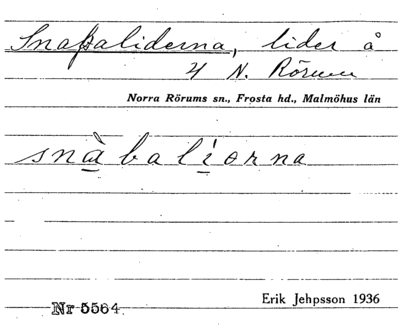 Snapaliderna, lider å
4 N. Rörum
Norra Rörums sn., Frosta hd., Malmöhus län
snàbaliorna
Nr 5564.
Erik Jehpsson 1936